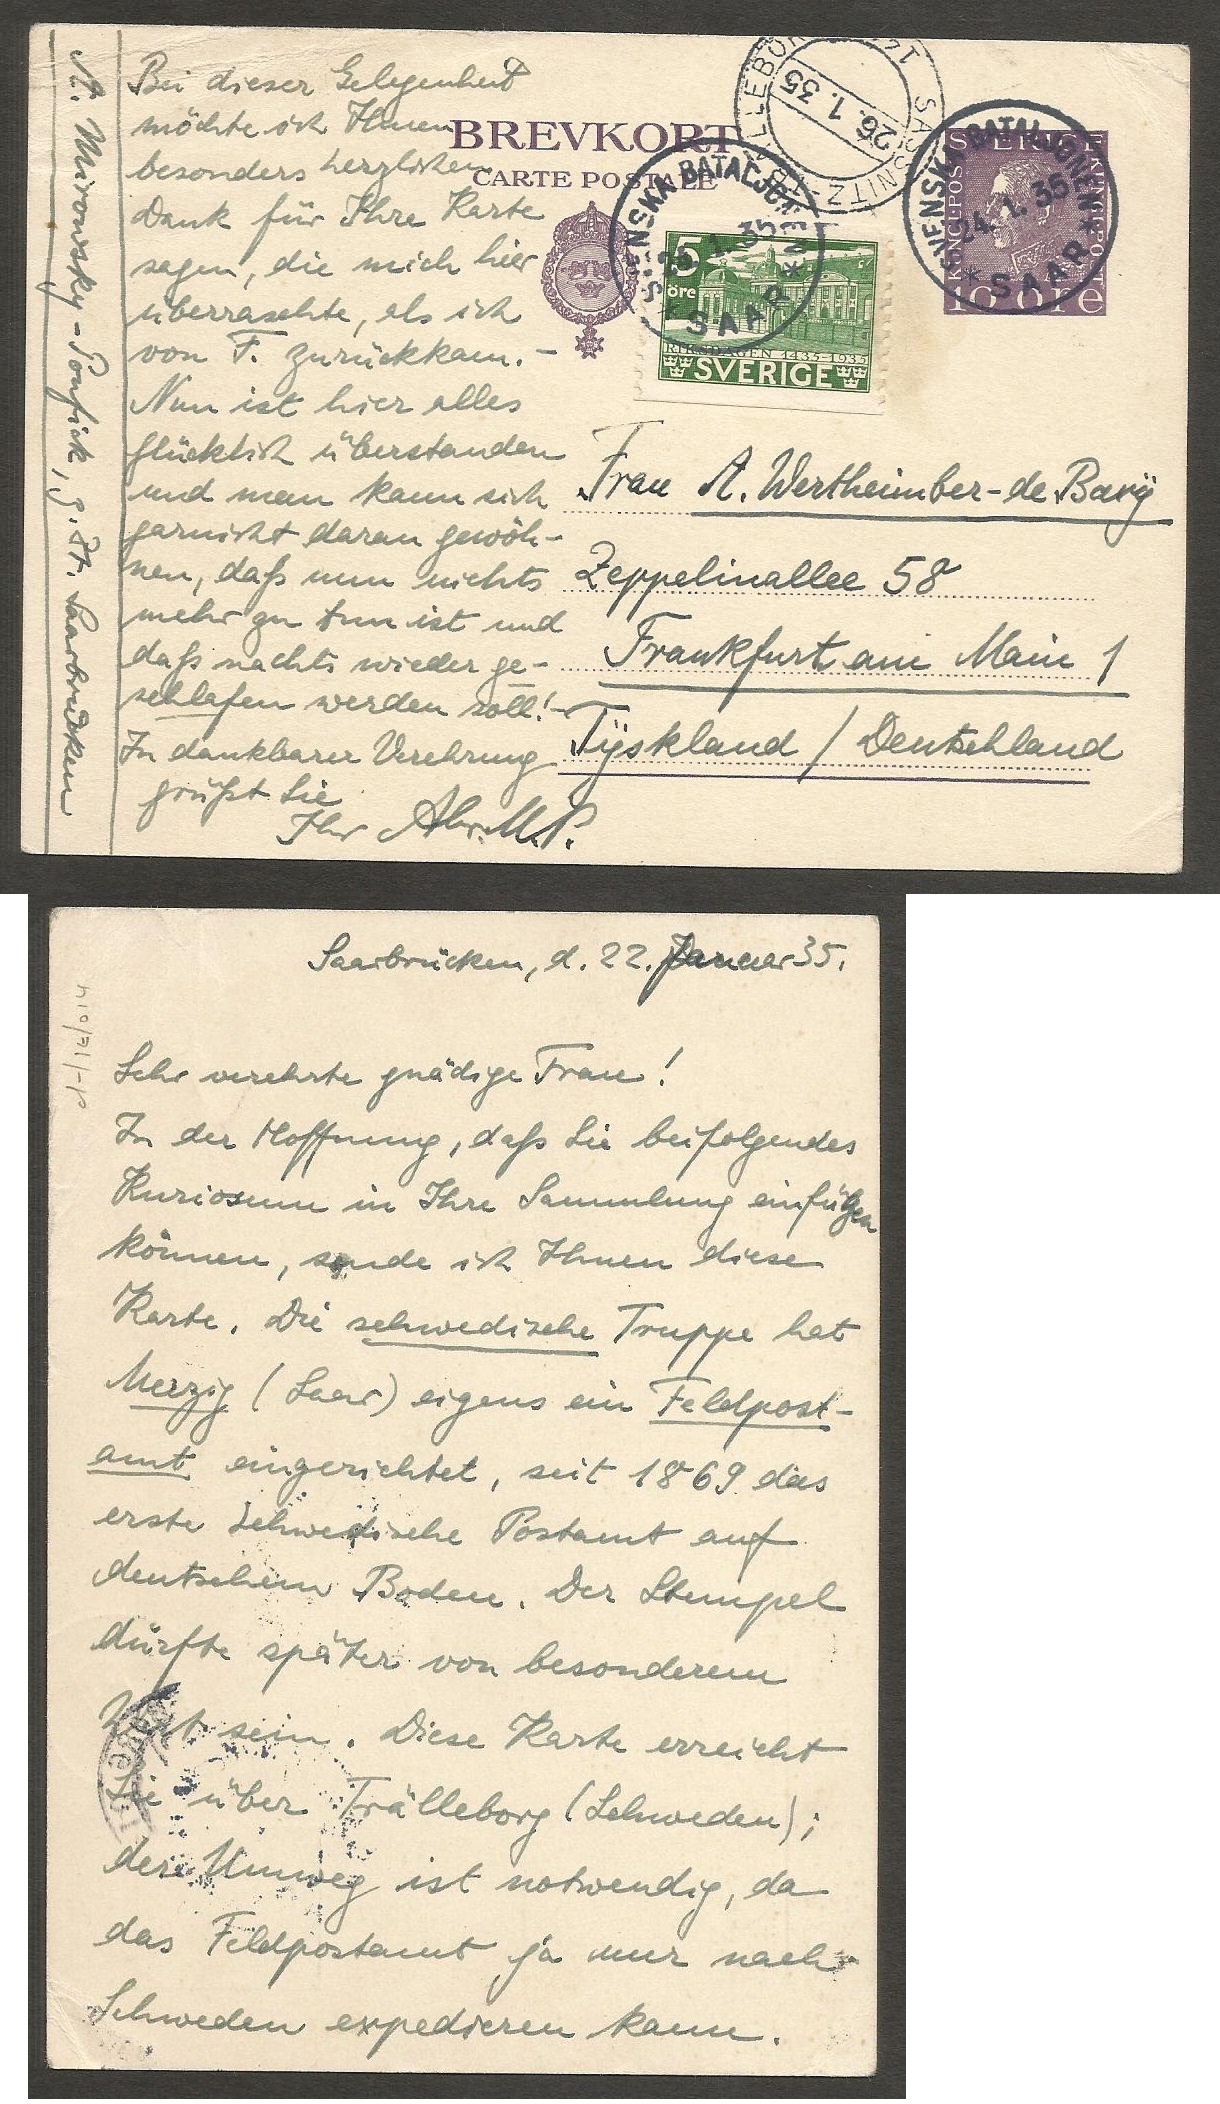 BREVKORT
CARTE POSTALE
SVERIGE
KUNGL. POST
KUNGL. POST
10 öre
5
öre
RIKSDAGEN 1435-1935
SVERIGE
SVENSKA BATALJONEN
35
* SAAR *
SVENSKA BATALJONEN
24. 1. 35
* SAAR *
SASSNITZ
26. 1. 35
Bei dieser Gelegenheit
möchte ich Ihnen
besonders herzlichen
Dank für Ihre Karte
sagen, die mich hier
überraschte, als ich
von F. zurückkam. –
Nun ist hier alles
glücklich überstanden
und man kann sich
garnicht daran gewöh-
nen, daß nun nichts
mehr zu tun ist und
daß nachts wieder ge-
schlafen werden soll! –
In dankbarer Verehrung
grüßt Sie
Ihr
A. Mironwsky-Ponfick, z. Zt. Saarbrücken
Frau A. Wertheimber-de Bary
Zeppelinallee 58
Frankfurt am Main 1
Tyskland / Deutschland
Saarbrücken, d. 22. Januar 35.
Sehr verehrte gnädige Frau!
In der Hoffnung, daß Sie beifolgendes
Kuriosum in Ihre Sammlung einfügen
können, sende ich Ihnen diese
Karte. Die schwedische Truppe hat
Merzig (Saar) eigens ein Feldpost-
amt eingerichtet, seit 1869 das
erste schwedische Postamt auf
deutschem Boden. Der Stempel
dürfte später von besonderem
Wert sein. Diese Karte erreicht
Sie über Trälleborg (Schweden);
der Umweg ist notwendig, da
das Feldpostamt ja nur nach
Schweden expedieren kann.